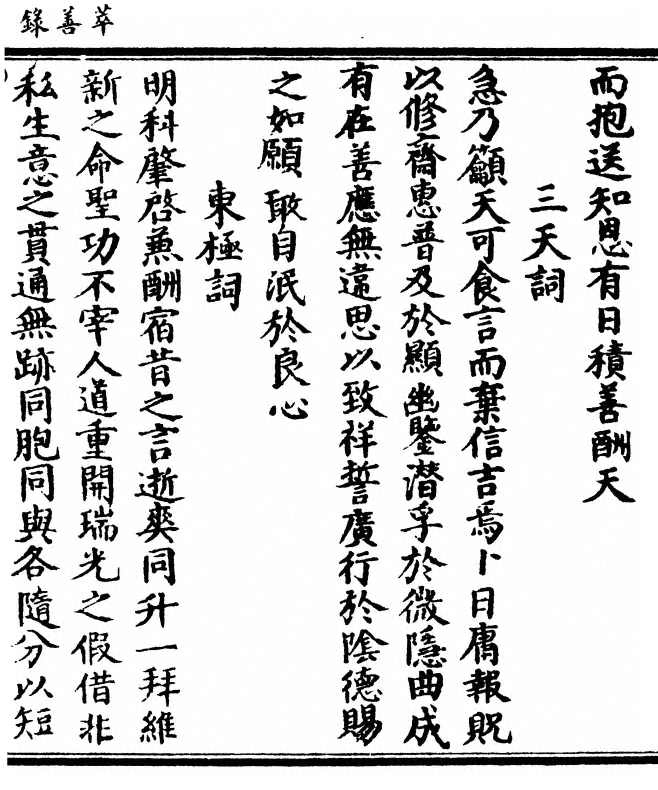 萃善錄
而抱送知恩有日積善酬天
三天詞
急乃籲天可食言而棄信吉焉卜日庸報貺
以修齋惠普及於顯幽鑒潛孚於微隱曲成
有在善應無違思以致祥誓廣行於陰德賜
之如願敢自泯於良心
東極詞
明科肇啓兼酬宿昔之言逝爽同升一拜維
新之命聖功不宰人道重開瑞光之假借非
私生意之貫通無跡同胞同與各隨分以短